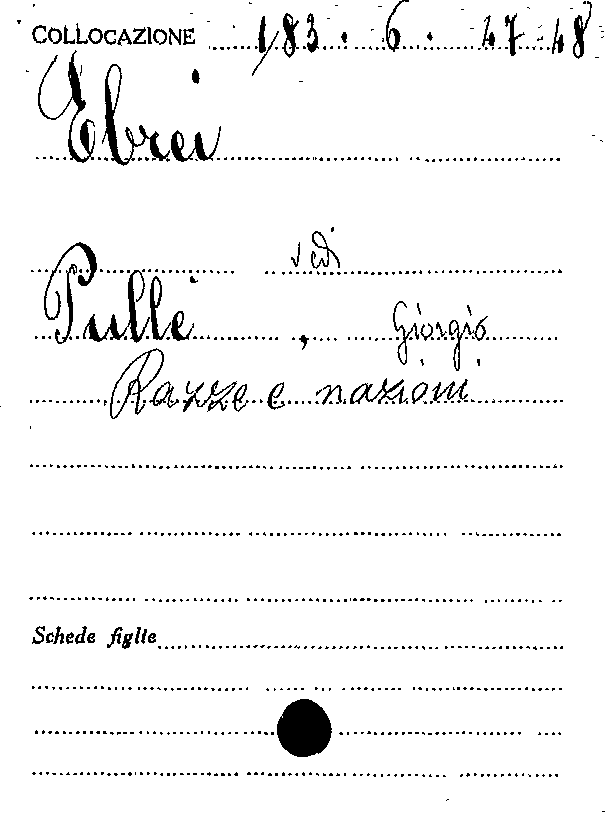 COLLOCAZIONE 183. 6. 47-48
Ebrei
vedi
Pullè, Giorgio
Razze e nazioni
Schede figlie